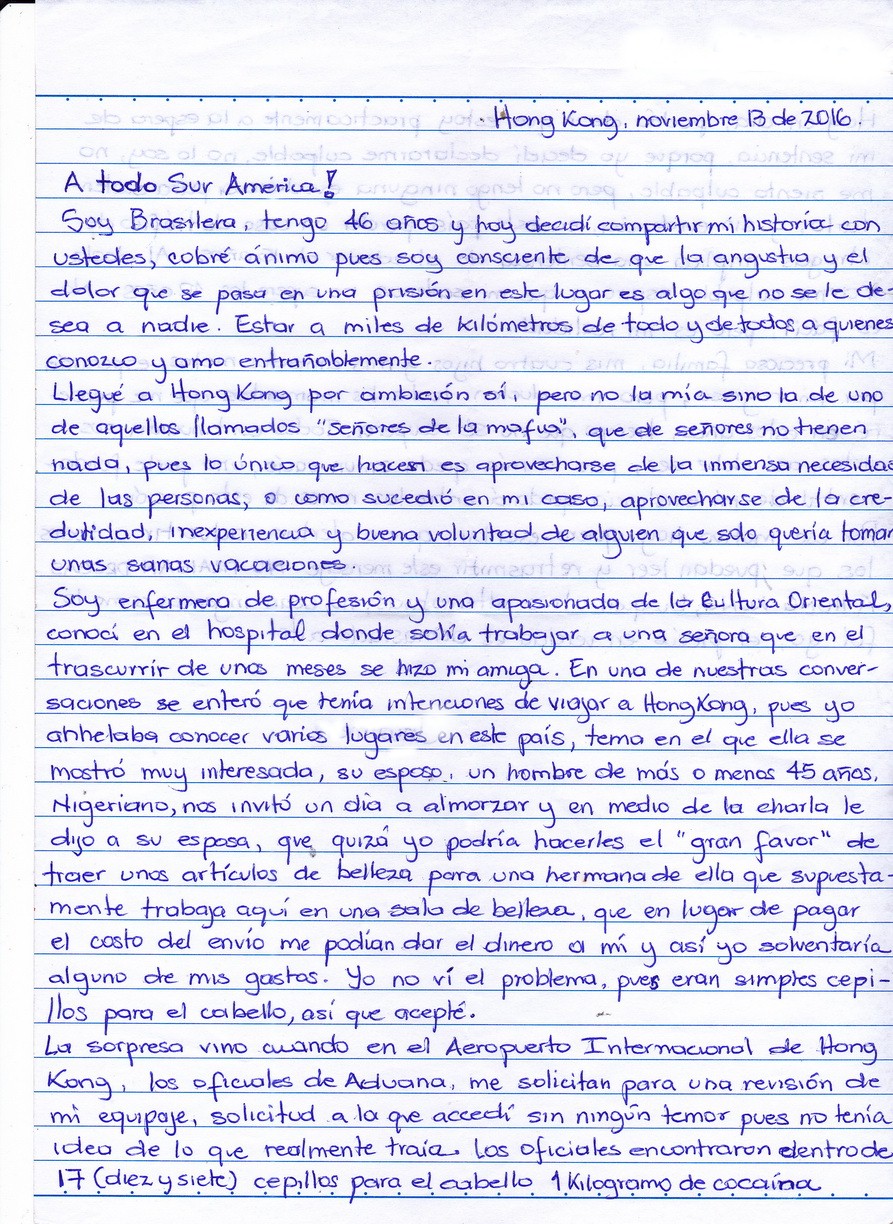 Hong Kong, noviembre 13 de 2016.
A todo Sur América!
Soy Brasilera, tengo 46 años y hoy decidí compartir mi historia con
ustedes, cobré ánimo pues soy consciente de que la angustia y el
dolor que se pasa en una prisión en este lugar es algo que no se le de-
sea a nadie. Estar a miles de kilómetros de todo y de todos a quienes
conozco y amo entrañablemente.
Llegué a Hong Kong por ambición sí, pero no la mía sino la de uno
de aquellos llamados "señores de la mafia", que de señores no tienen
nada, pues lo único que hacen es aprovecharse de la inmensa necesidad
de las personas, o como sucedió en mi caso, aprovecharse de la cre-
dulidad, inexperiencia y buena voluntad de alguien que solo quería tomar
unas sanas vacaciones.
Soy enfermera de profesión y una apasionada de la Cultura Oriental,
conocí en el hospital donde solía trabajar a una señora que en el
trascurrir de unos meses se hizo mi amiga. En una de nuestras conver-
saciones se enteró que tenía intenciones de viajar a Hong Kong, pues yo
anhelaba conocer varios lugares en este país, tema en el que ella se
mostró muy interesada, su esposo, un hombre de más o menos 45 años,
Nigeriano, nos invitó un día a almorzar y en medio de la charla le
dijo a su esposa, que quizá yo podría hacerles el "gran favor" de
traer unos artículos de belleza para una hermana de ella que supuesta-
mente trabaja aquí en una sala de belleza, que en lugar de pagar
el costo del envío me podían dar el dinero a mí y así yo solventaría
alguno de mis gastos. Yo no ví el problema, pues eran simples cepi-
llos para el cabello, así que acepté.
La sorpresa vino cuando en el Aeropuerto Internacional de Hong
Kong, los oficiales de Aduana, me solicitan para una revisión de
mi equipaje, solicitud a la que accedí sin ningún temor pues no tenía
idea de lo que realmente traía. Los oficiales encontraron dentro de
17 (diez y siete) cepillos para el cabello 1 Kilogramo de cocaína